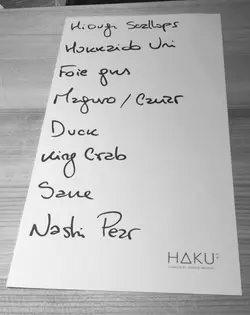 Hiougi Scallops
Hokkaido Uni
Foie gras
Maguro / Caviar
Duck
King Crab
Sane
Nashi Pear
HAKU